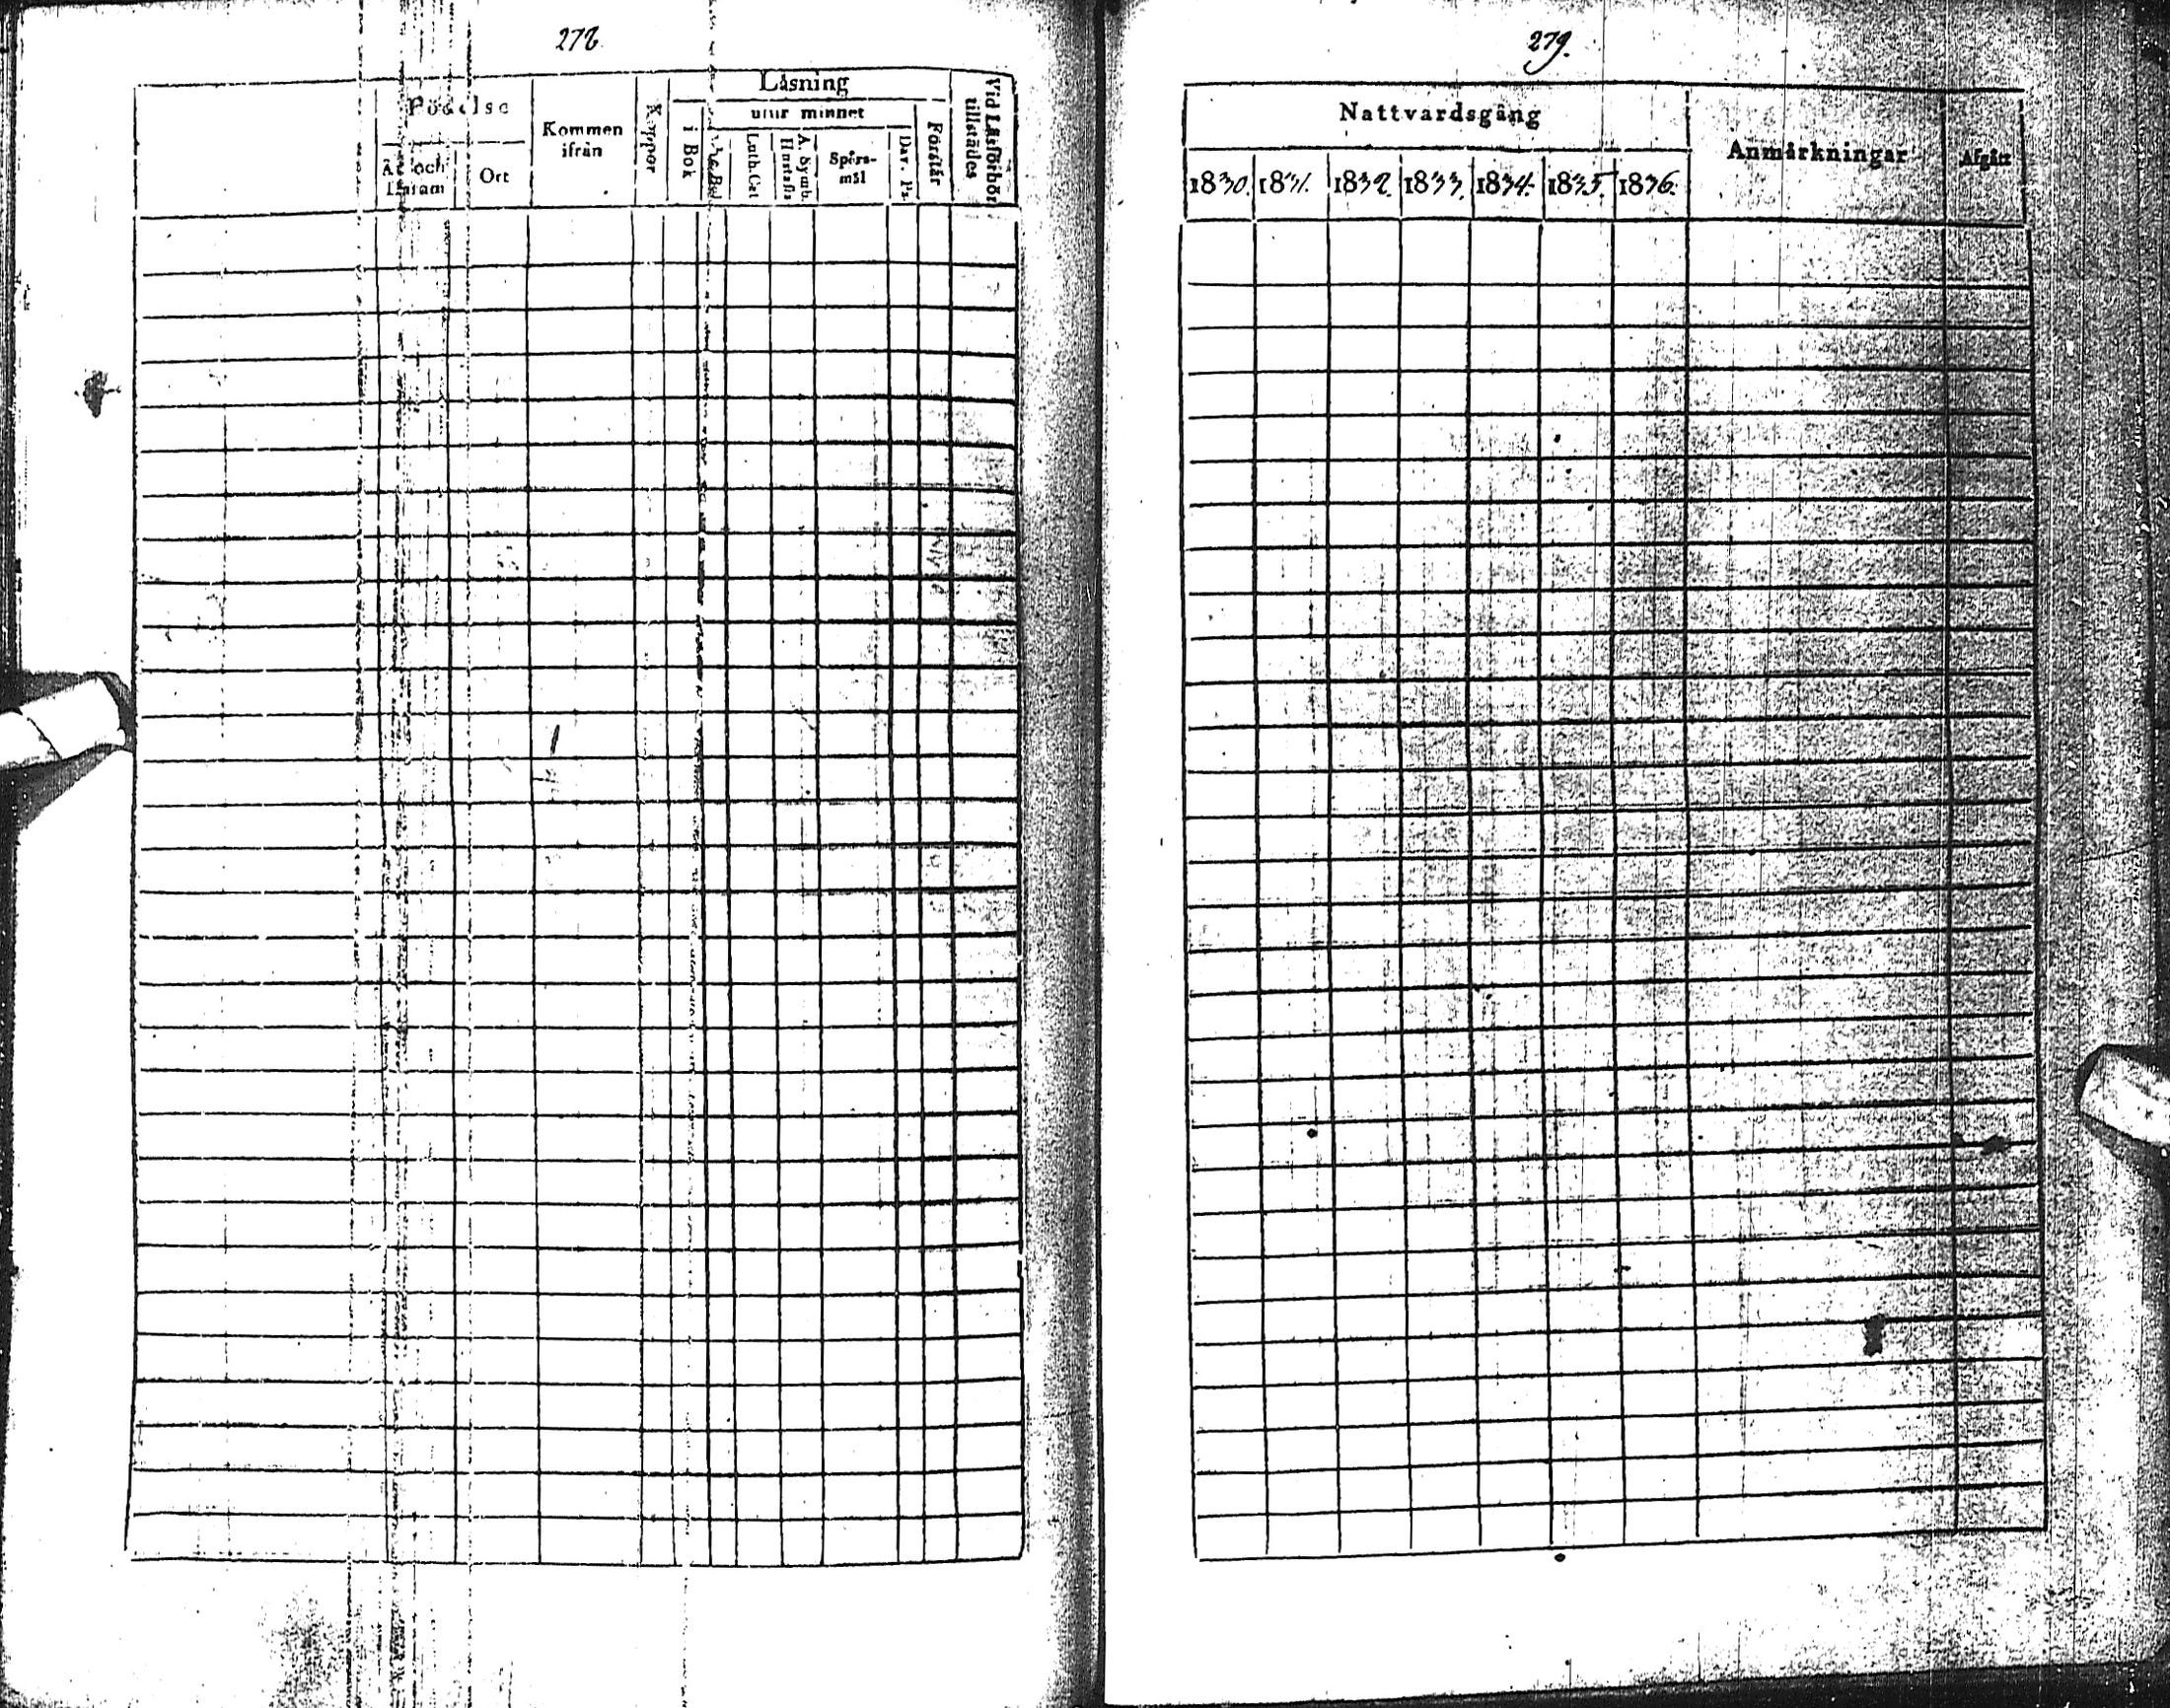 278
Läsning
Födelse
Kommen
ifrån
Koppor
i Bok
utur minnet
Luth. Cat
A. Symb.
Hustafla
Spörs-
mål
Dav. Ps.
Förstår
Vid Läsförhör
tillstädes
År och
Datum
Ort
279.
Nattvardsgång
Anmärkningar
Afgått
1830. 1831. 1832. 1833. 1834. 1835. 1836.